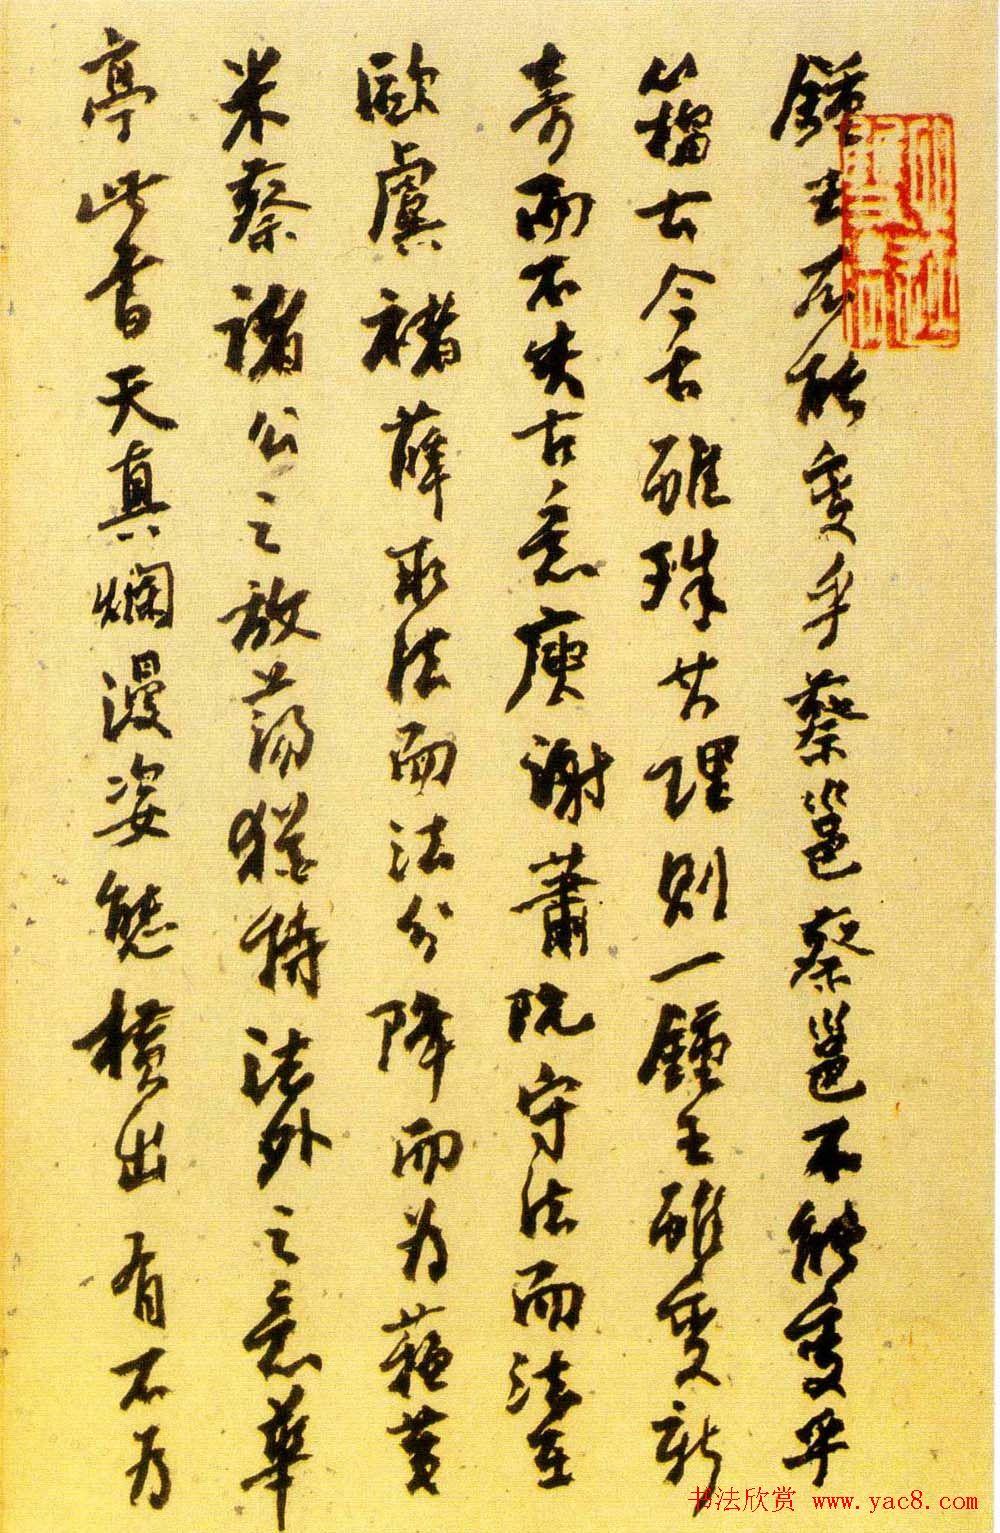 鍾王不能變乎蔡邕蔡邕不能變乎
籀古今古雖殊其理則一鍾王雖變新
奇而不失古意庾謝蕭阮守法而法在
歐虞褚薛取法而法分降而為蘇黃
米蔡諸公之放蕩猶持法外之意華
亭此書天真爛漫姿態橫出有不為
书法欣赏 www.yac8.com